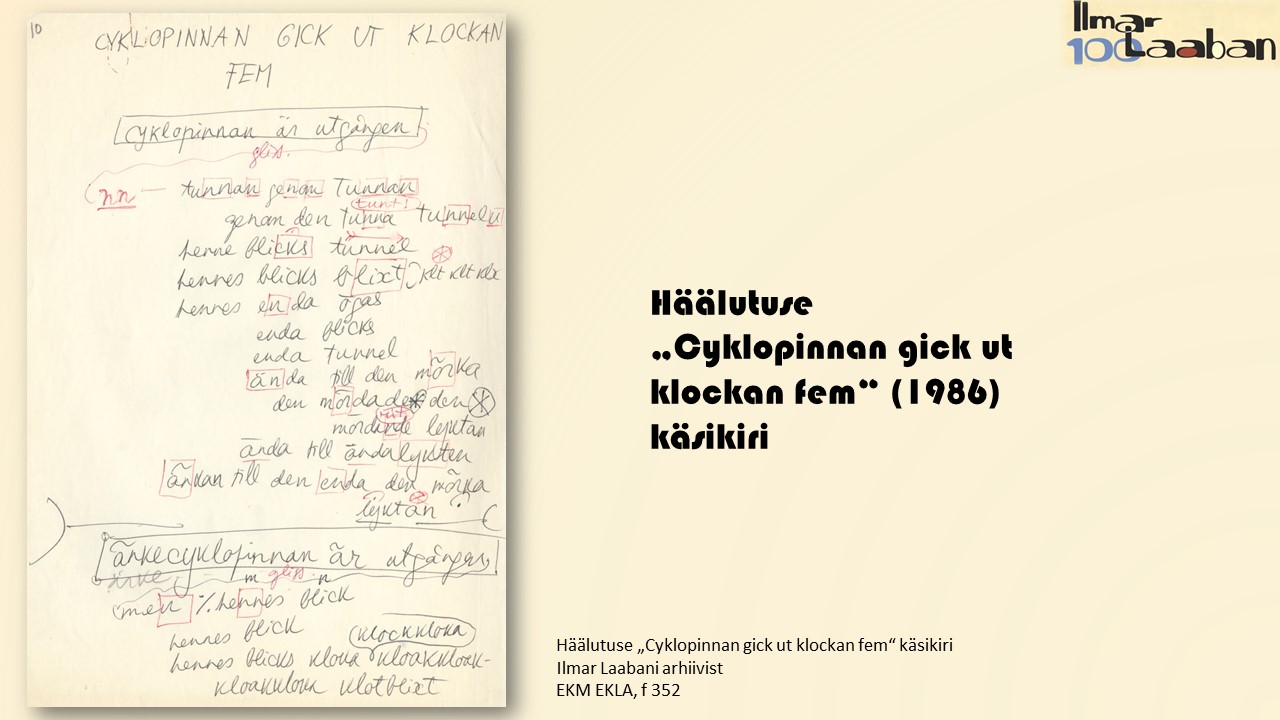 10
CYKLOPINNAN GICK UT KLOCKAN
FEM
cyklopinnan är utgången
gliss.
nn — tunnan genom Tunnan
(tunt!)
genom den tunna tunneln
henne blicks tunnel
hennes blicks blixt klt klt klx
hennes enda ögas
enda blicks
enda tunnel
ända till den mörka
den mördade den
mördande lyktan
ända till ändalykten
änkan till den enda den mörka
lyktan
änkecyklopinnan är utgången
m gliss n
men % hennes blick
hennes blick
(klockkloka)
hennes blicks kloka kloakkloak-
kloakkloka klotblixt
Ilmar
100 Laaban
Häälutuse
„Cyklopinnan gick ut
klockan fem“ (1986)
käsikiri
Häälutuse „Cyklopinnan gick ut klockan fem“ käsikiri
Ilmar Laabani arhiivist
EKM EKLA, f 352